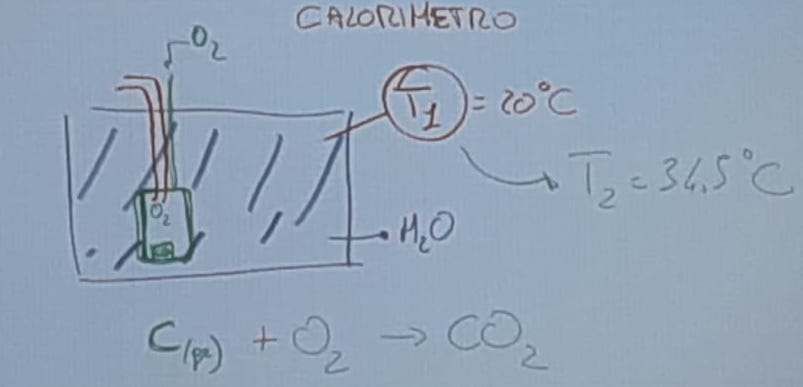 CALORIMETRO
O₂
T₁ = 20°C
T₂ = 34,5°C
O₂
H₂O
C(gr) + O₂ → CO₂